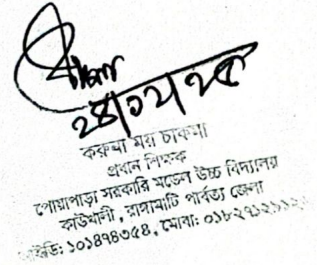 ২৪/১২/২৫
করুনা ময় চাকমা
প্রধান শিক্ষক
পোয়াপাড়া সরকারি মডেল উচ্চ বিদ্যালয়
কাউখালী , রাঙ্গামাটি পার্বত্য জেলা
১০১৪৭৪৩৫৪, মোবা: